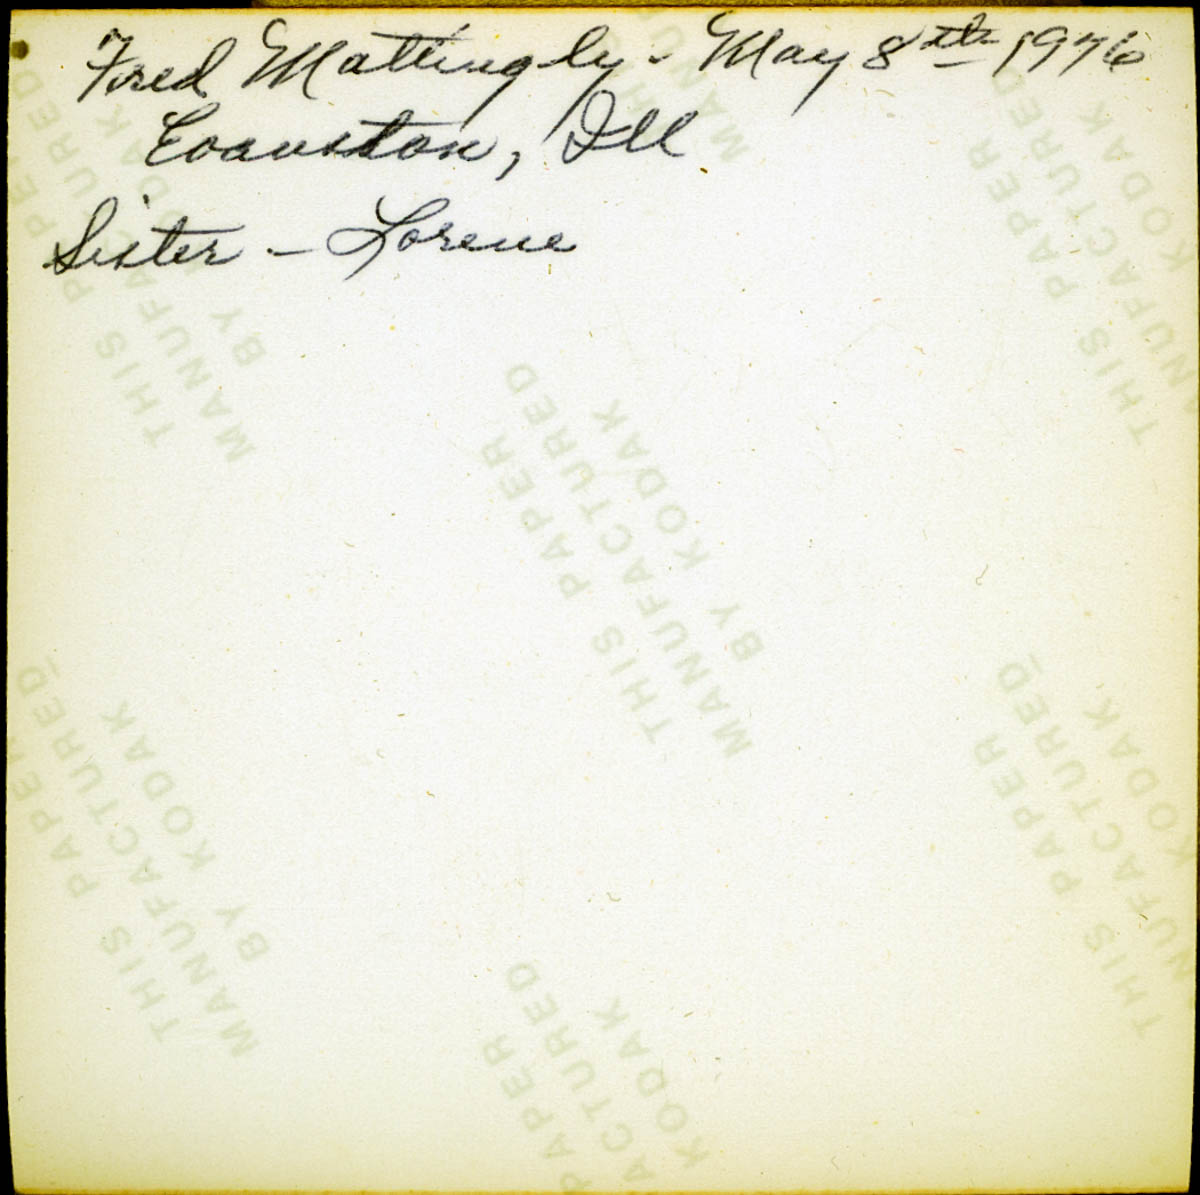 Fred Mattingly - May 8th 1976
Evanston, Ill
Sister - Lorene
THIS PAPER
MANUFACTURED
BY KODAK
THIS PAPER
MANUFACTURED
BY KODAK
THIS PAPER
MANUFACTURED
BY KODAK
THIS PAPER
MANUFACTURED
BY KODAK
THIS PAPER
MANUFACTURED
KODAK
PAPER
KODAK